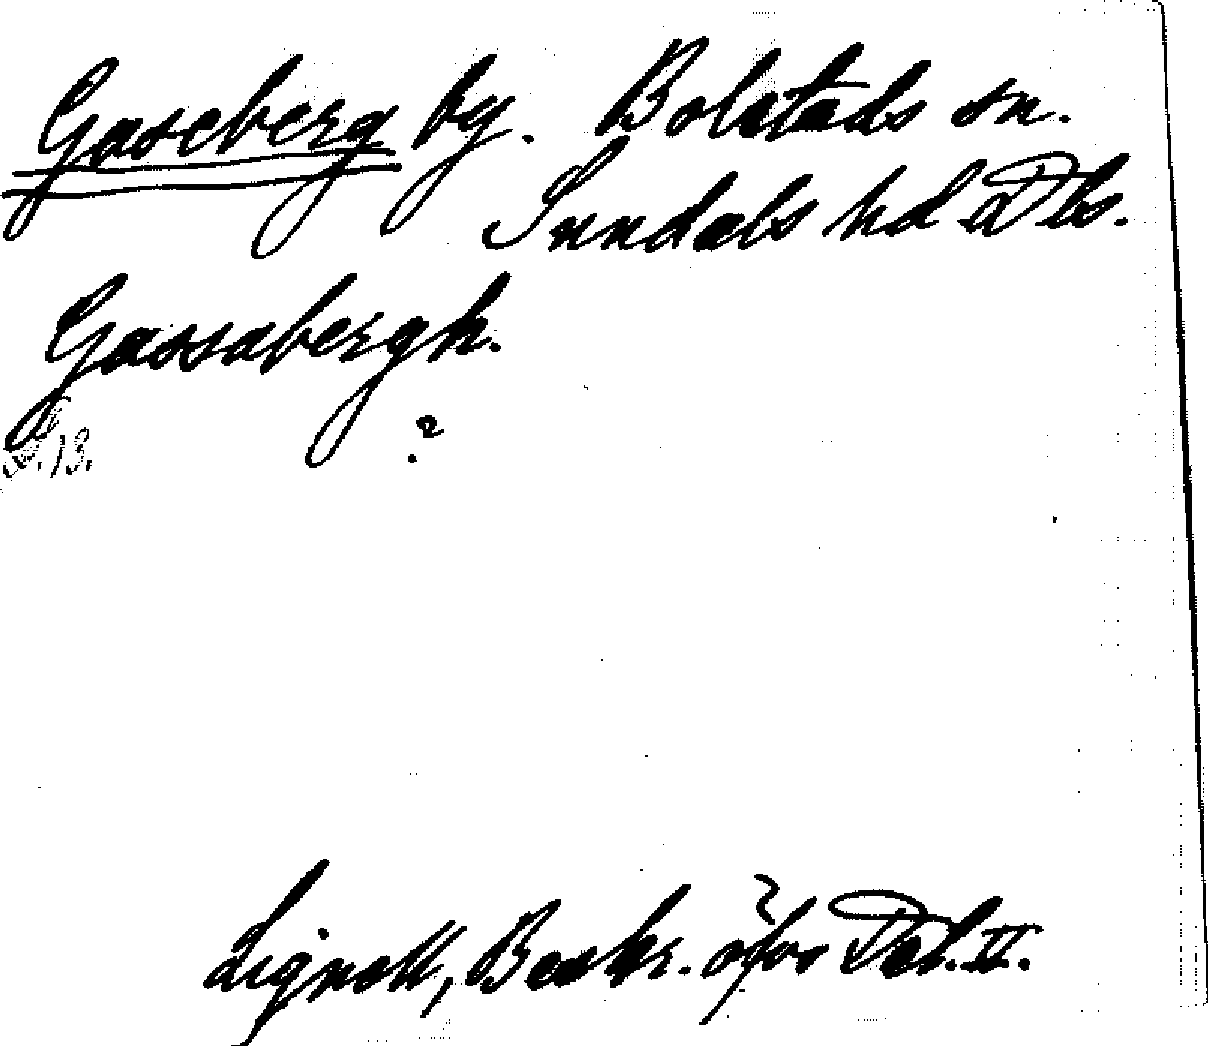 Gaseberg by. Bolstads sn.
Sundals hd Dls.
Gassabergh.
s. 13.
?
Lignell, Beskr. öfver Dal. II.